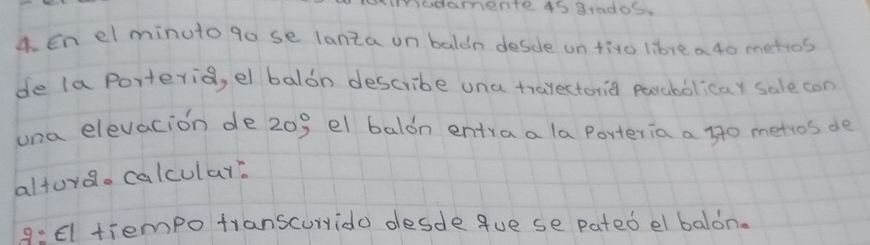 madamente 45 grados.
4. En el minuto 90 se lanza un balón desde un tiro libre a 40 metros
de la Portería, el balón describe una trayectoria parabólica y sale con
una elevación de 20°; el balón entra a la Portería a metros de
altura. calcular:
a: El tiempo transcurrido desde que se pateó el balón.